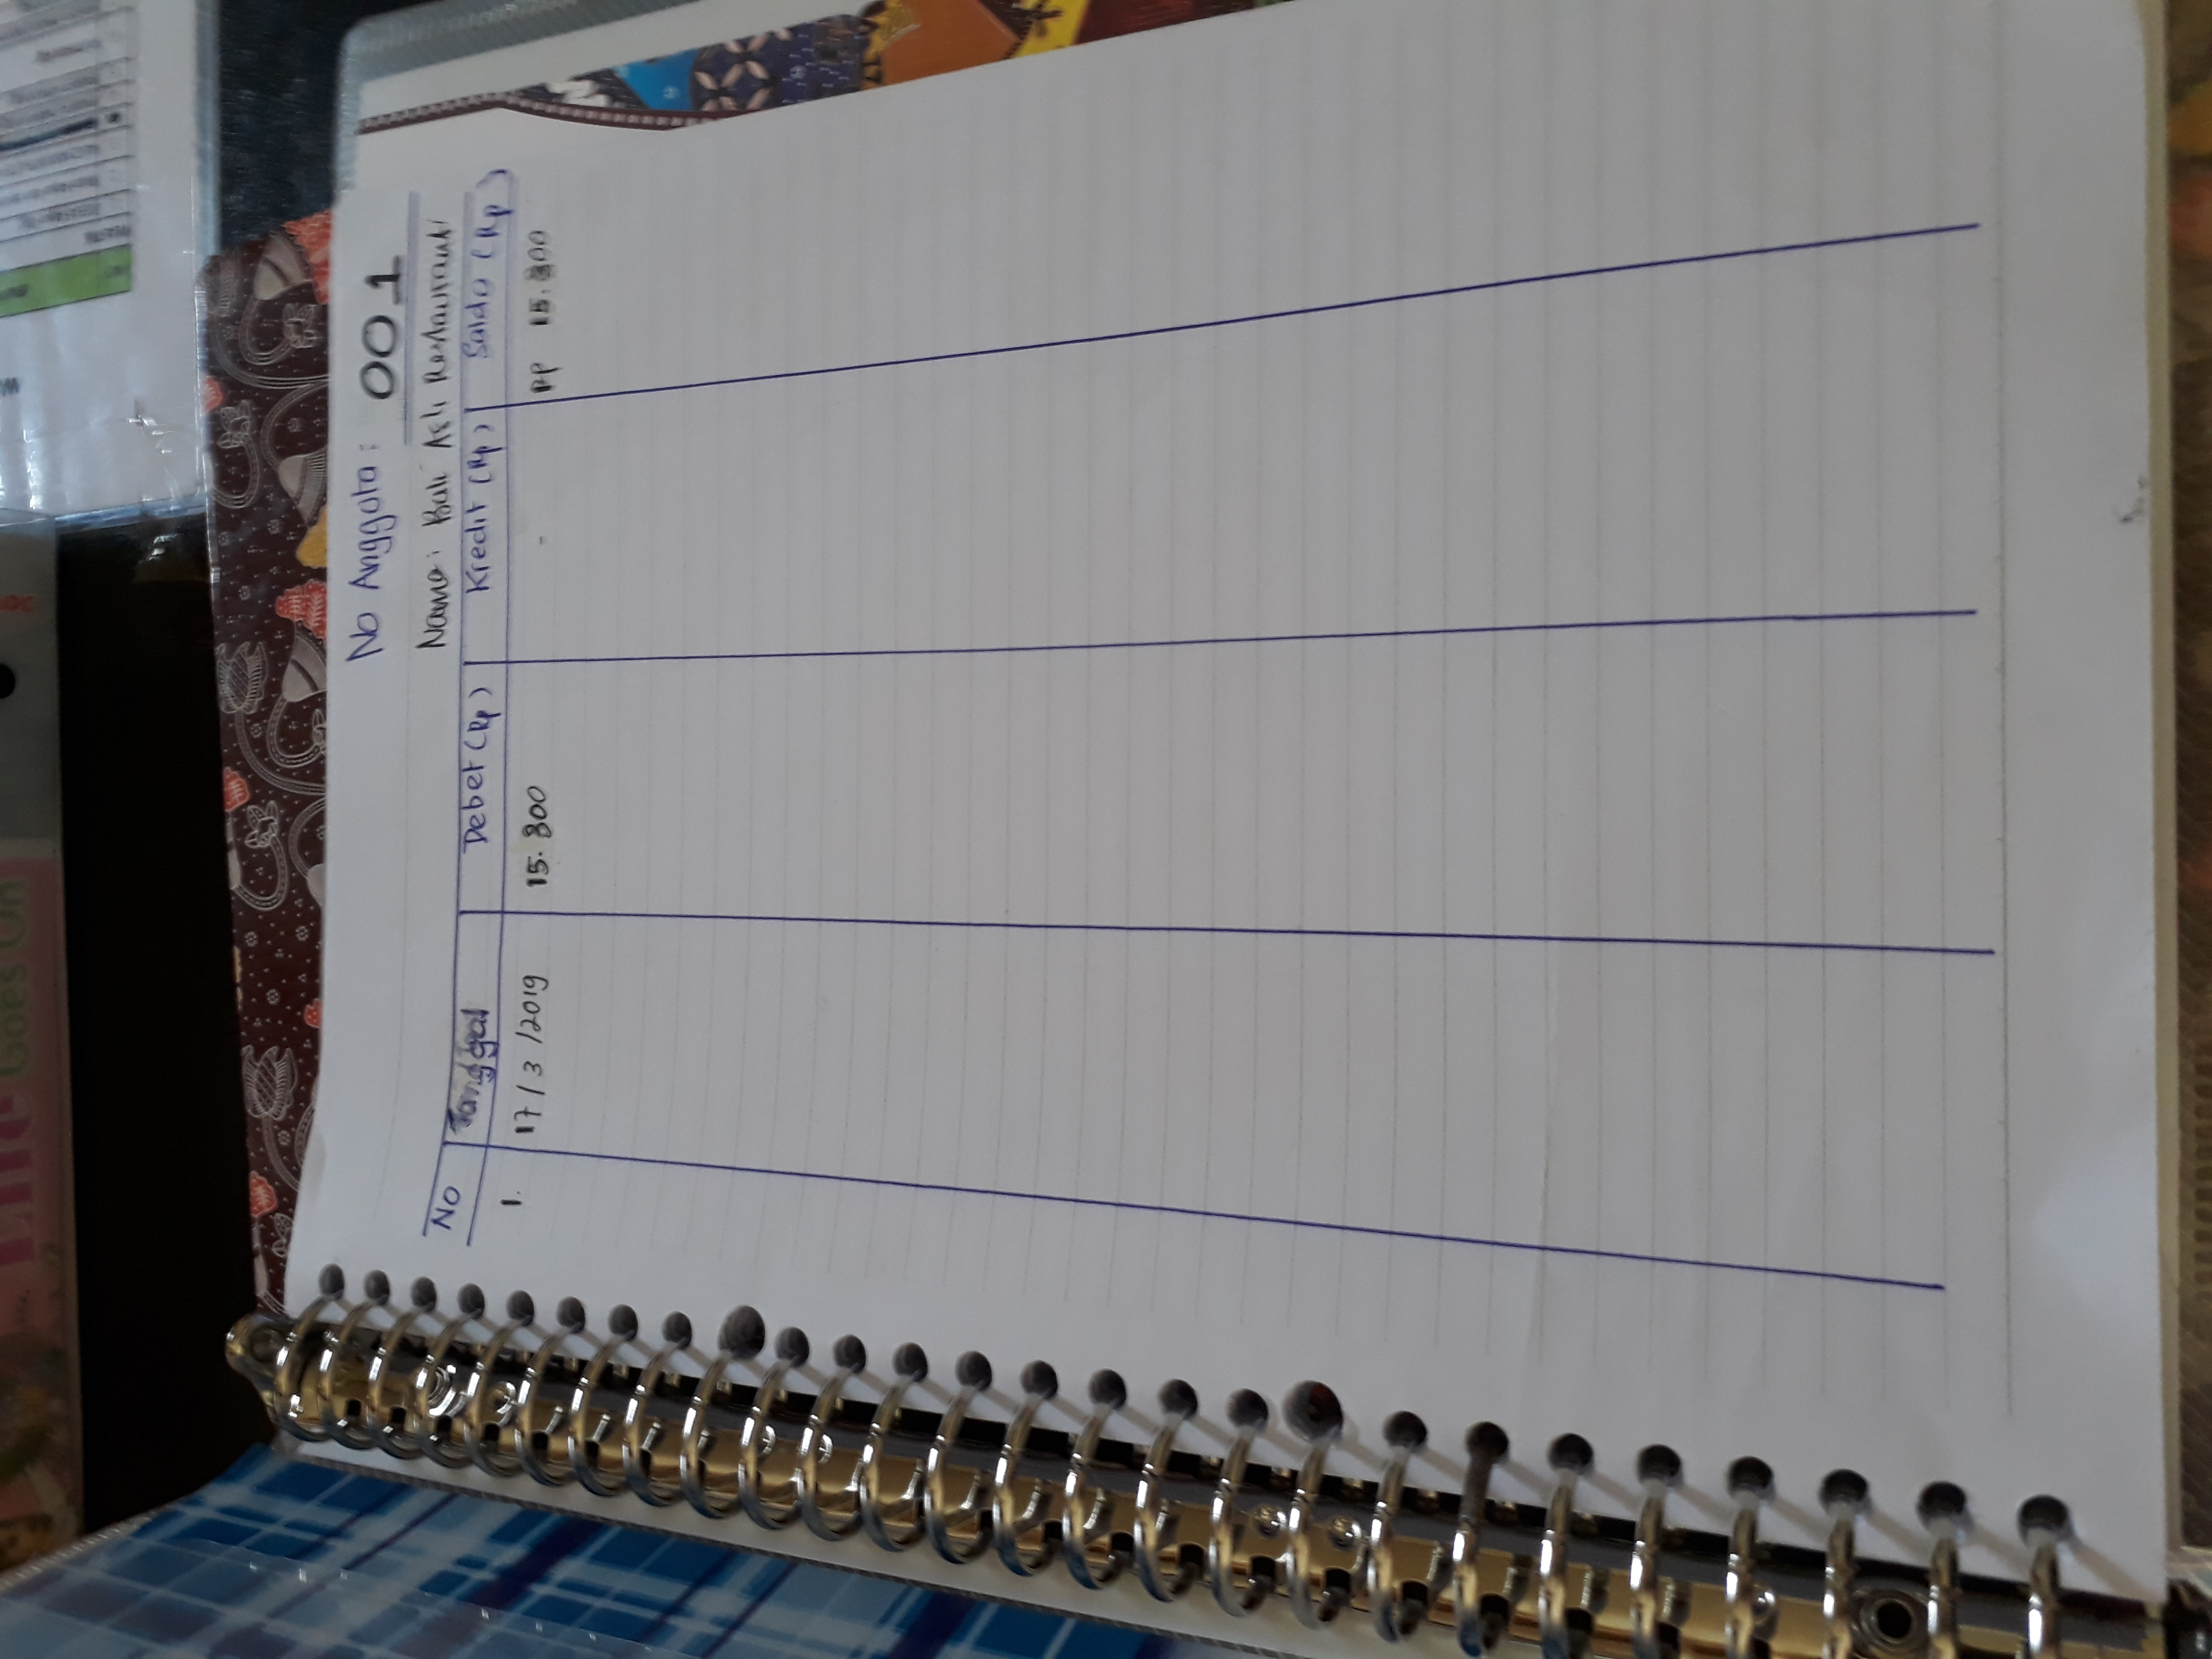 Life Goes On
No Anggota : 001
Nama : Bali Asli Restaurant
No Tanggal Debet (Rp) Kredit (Rp) Saldo (Rp)
1. 17/3/2019 15.800 - RP 15.800